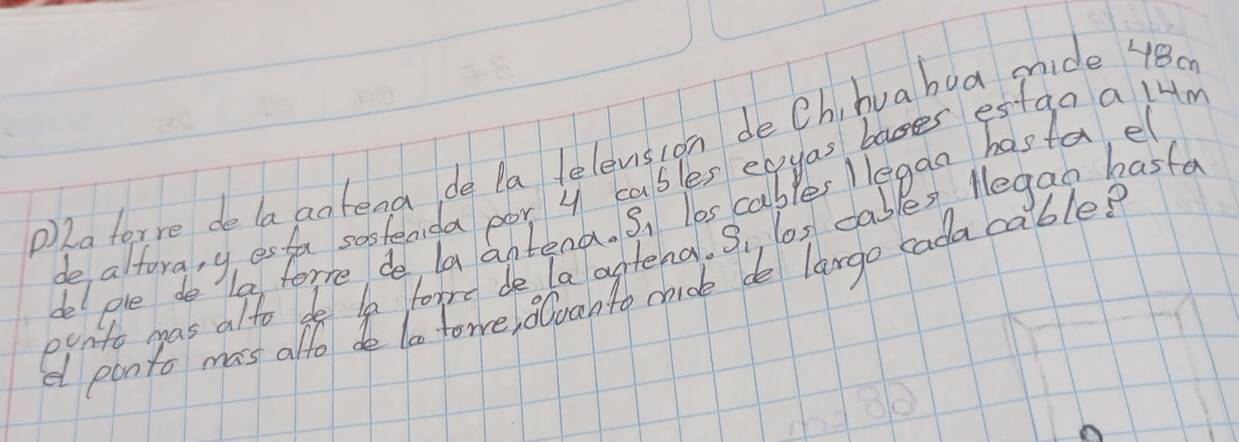 D) La torre de la antena de la televisión de Chihuahua mide 48m
de altura, y esta sostenida por 4 cables cuyas bases estan a 14m
del pie de la torre de la antena. Si los cables llegan hasta el
punto mas alto de la torre de la antena. Si, los cables llegan hasta
el punto más alto de la torre, ¿Cuanto mide de largo cada cable?